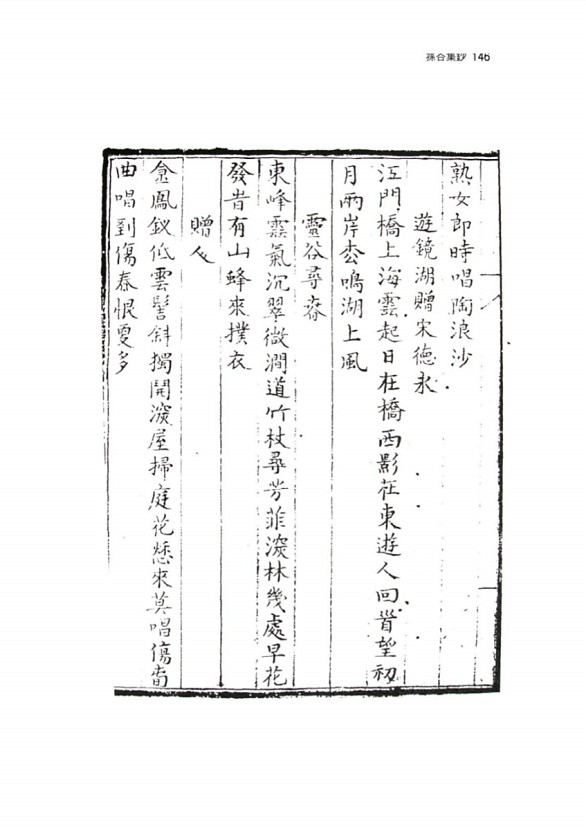 孫谷集鈔 146
熟女即時唱陶浪沙
遊鏡湖贈宋德永
江門橋上海雲起日在橋西影在東遊人回首望初
月兩岸杢鳴湖上風
靈谷尋春
東峰雲氣沉翠微澗道竹杖尋芳菲深林幾處早花
發昔有山蜂來撲衣
贈人
金鳳釵低雲髻斜獨開深屋掃庭花愁來莫唱傷春
曲唱到傷春恨更多